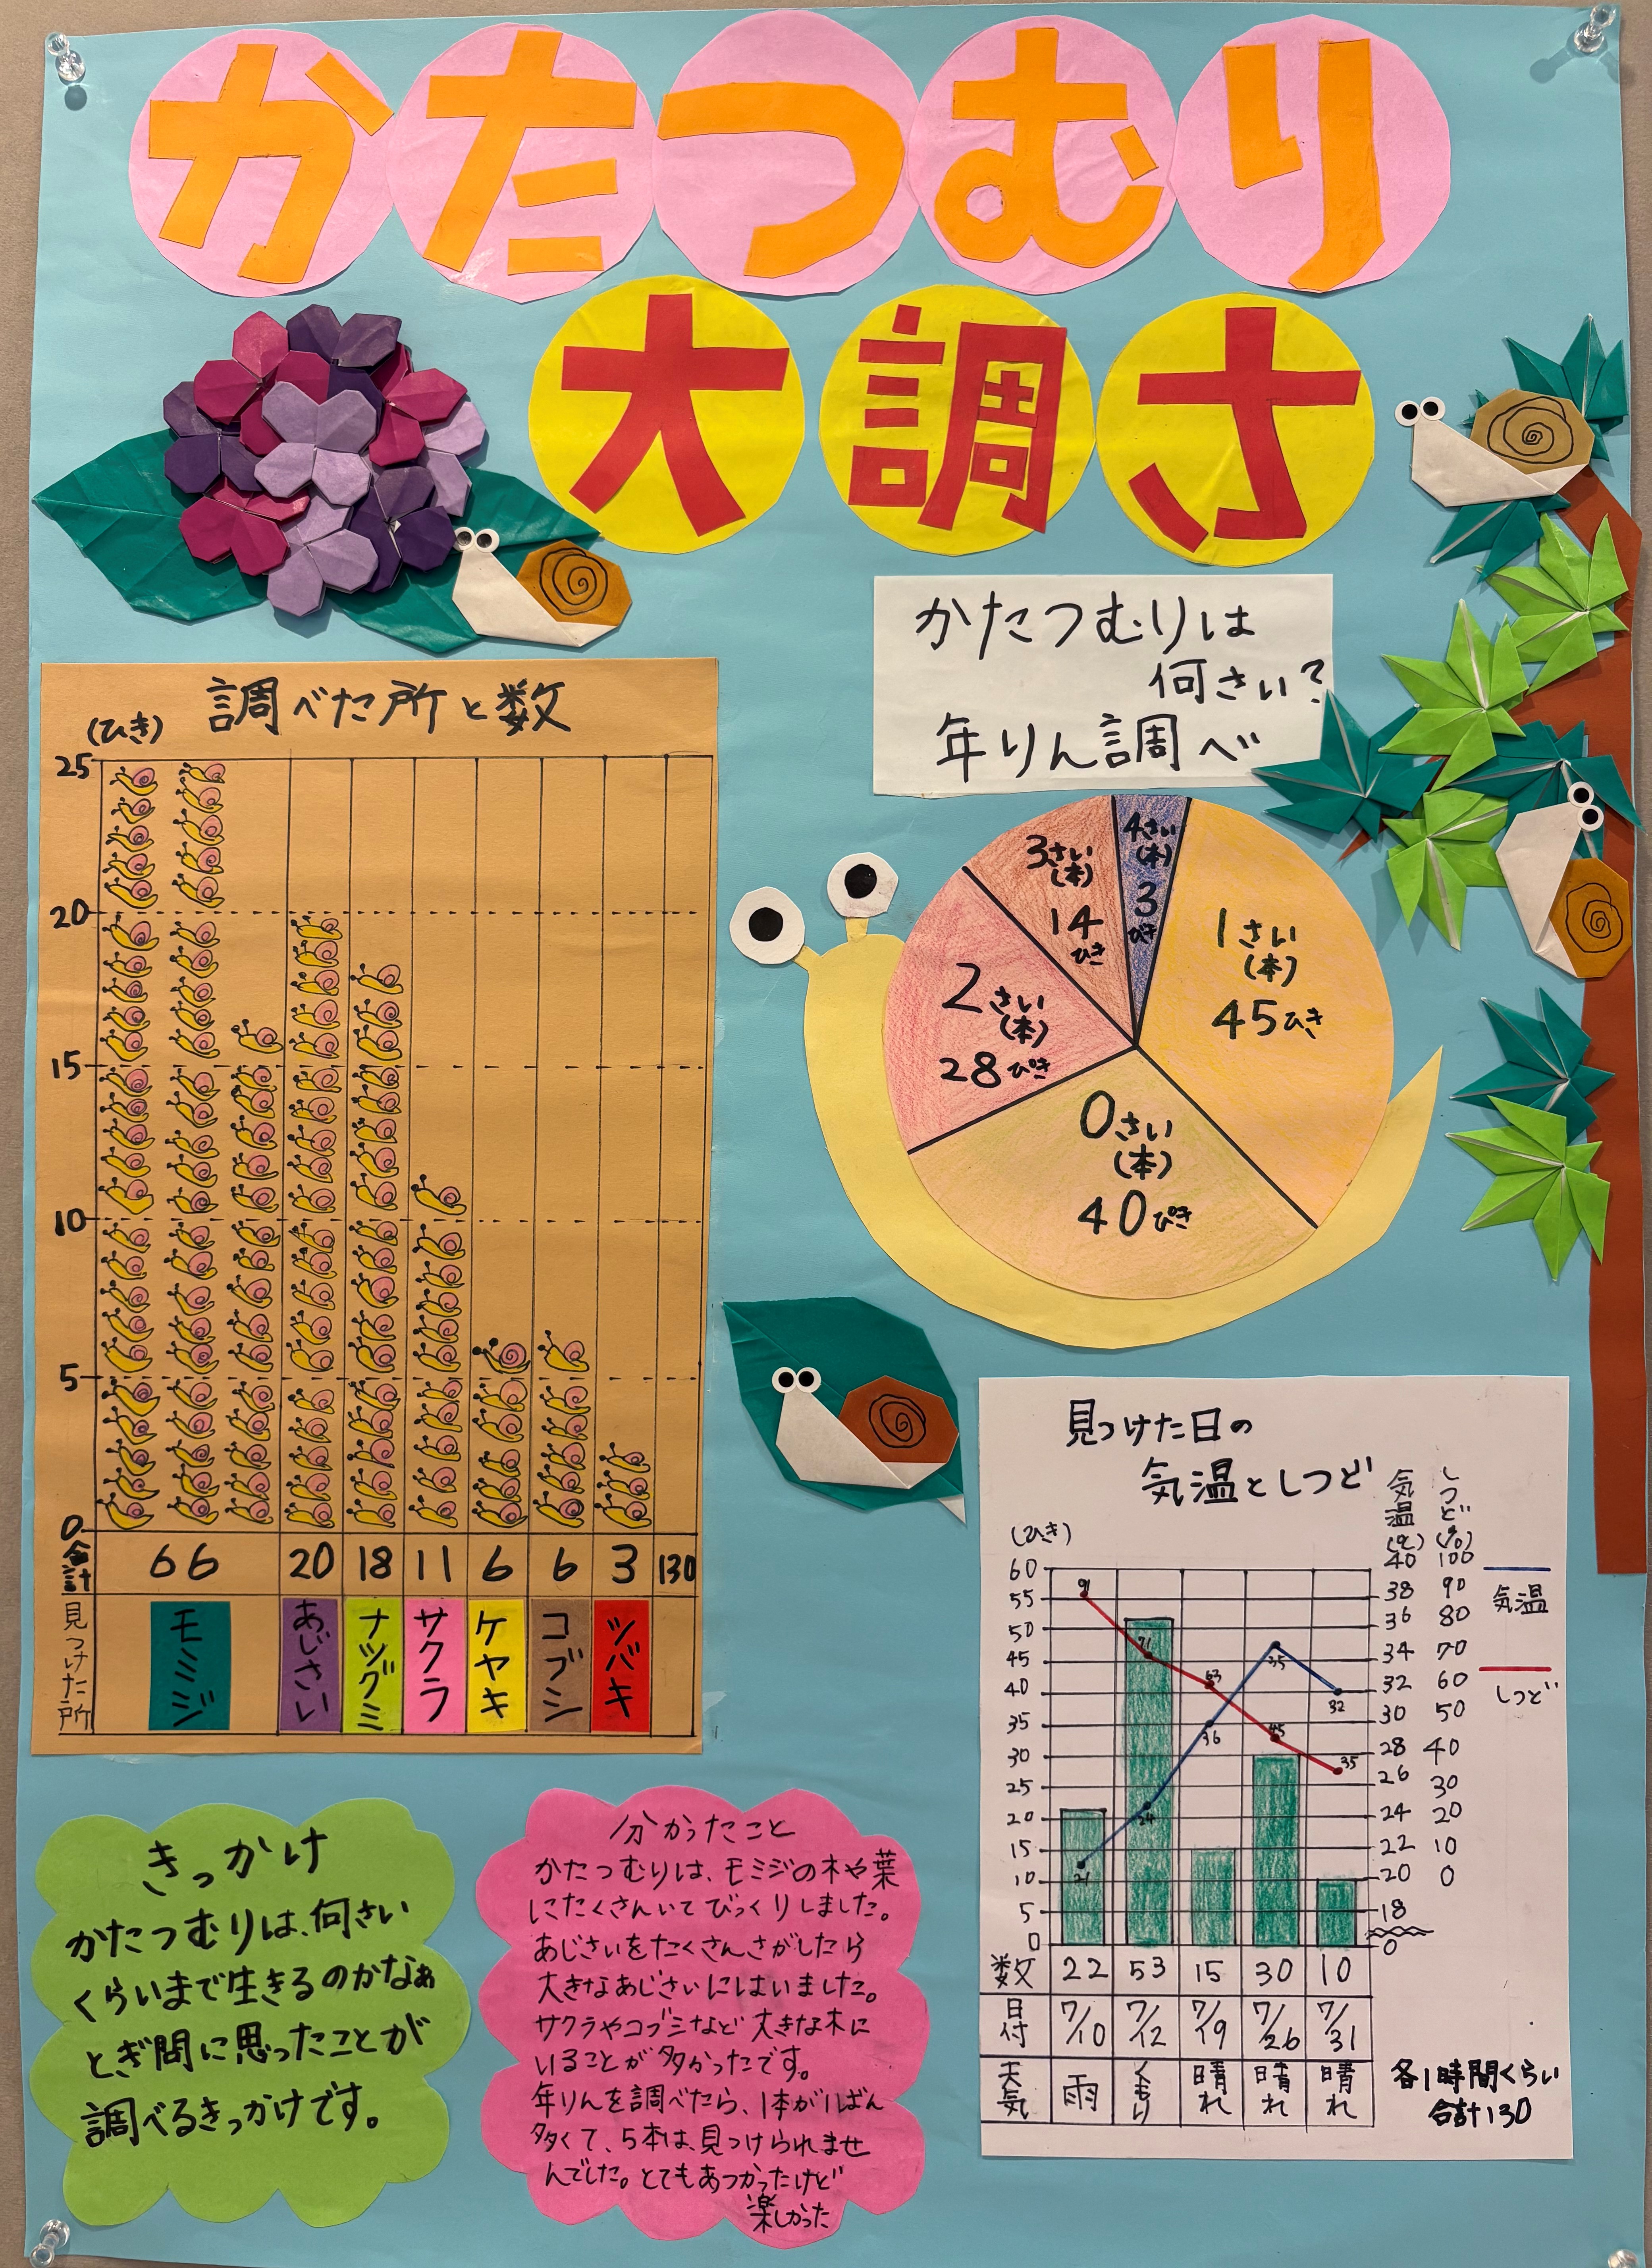 かたつむり
大調さ
かたつむりは
何さい?
年りん調べ
調べた所と数
(ひき)
25
20
15
10
5
0
合計
66
20
18
11
6
6
3
130
見つけた所
モミジ
あじさい
ナツグミ
サクラ
ケヤキ
コブシ
ツバキ
4さい
(本)
3
びき
3さい
(本)
14
ひき
1さい
(本)
45ひき
2さい
(本)
28ぴき
0さい
(本)
40ぴき
見つけた日の
気温としつど
(ひき)
気温
(℃)
しつど
(%)
60
55
50
45
40
35
30
25
20
15
10
5
0
40 100
38 90
36 80
34 70
32 60
30 50
28 40
26 30
24 20
22 10
20 0
18
0
気温
しつど
91
71
63
45
35
21
24
36
35
32
数 22 53 15 30 10
日付 7/10 7/12 7/19 7/26 7/31
天気 雨 くもり 晴れ 晴れ 晴れ
各1時間くらい
合計130
きっかけ
かたつむりは、何さい
くらいまで生きるのかなぁ
とぎ問に思ったことが
調べるきっかけです。
分かったこと
かたつむりは、モミジの木や葉
にたくさんいてびっくりしました。
あじさいをたくさんさがしたら
大きなあじさいにはいました。
サクラやコブシなど大きな木に
いることが多かったです。
年りんを調べたら、1本が1ばん
多くて、5本は、見つけられませ
んでした。とてもあつかったけど
楽しかった